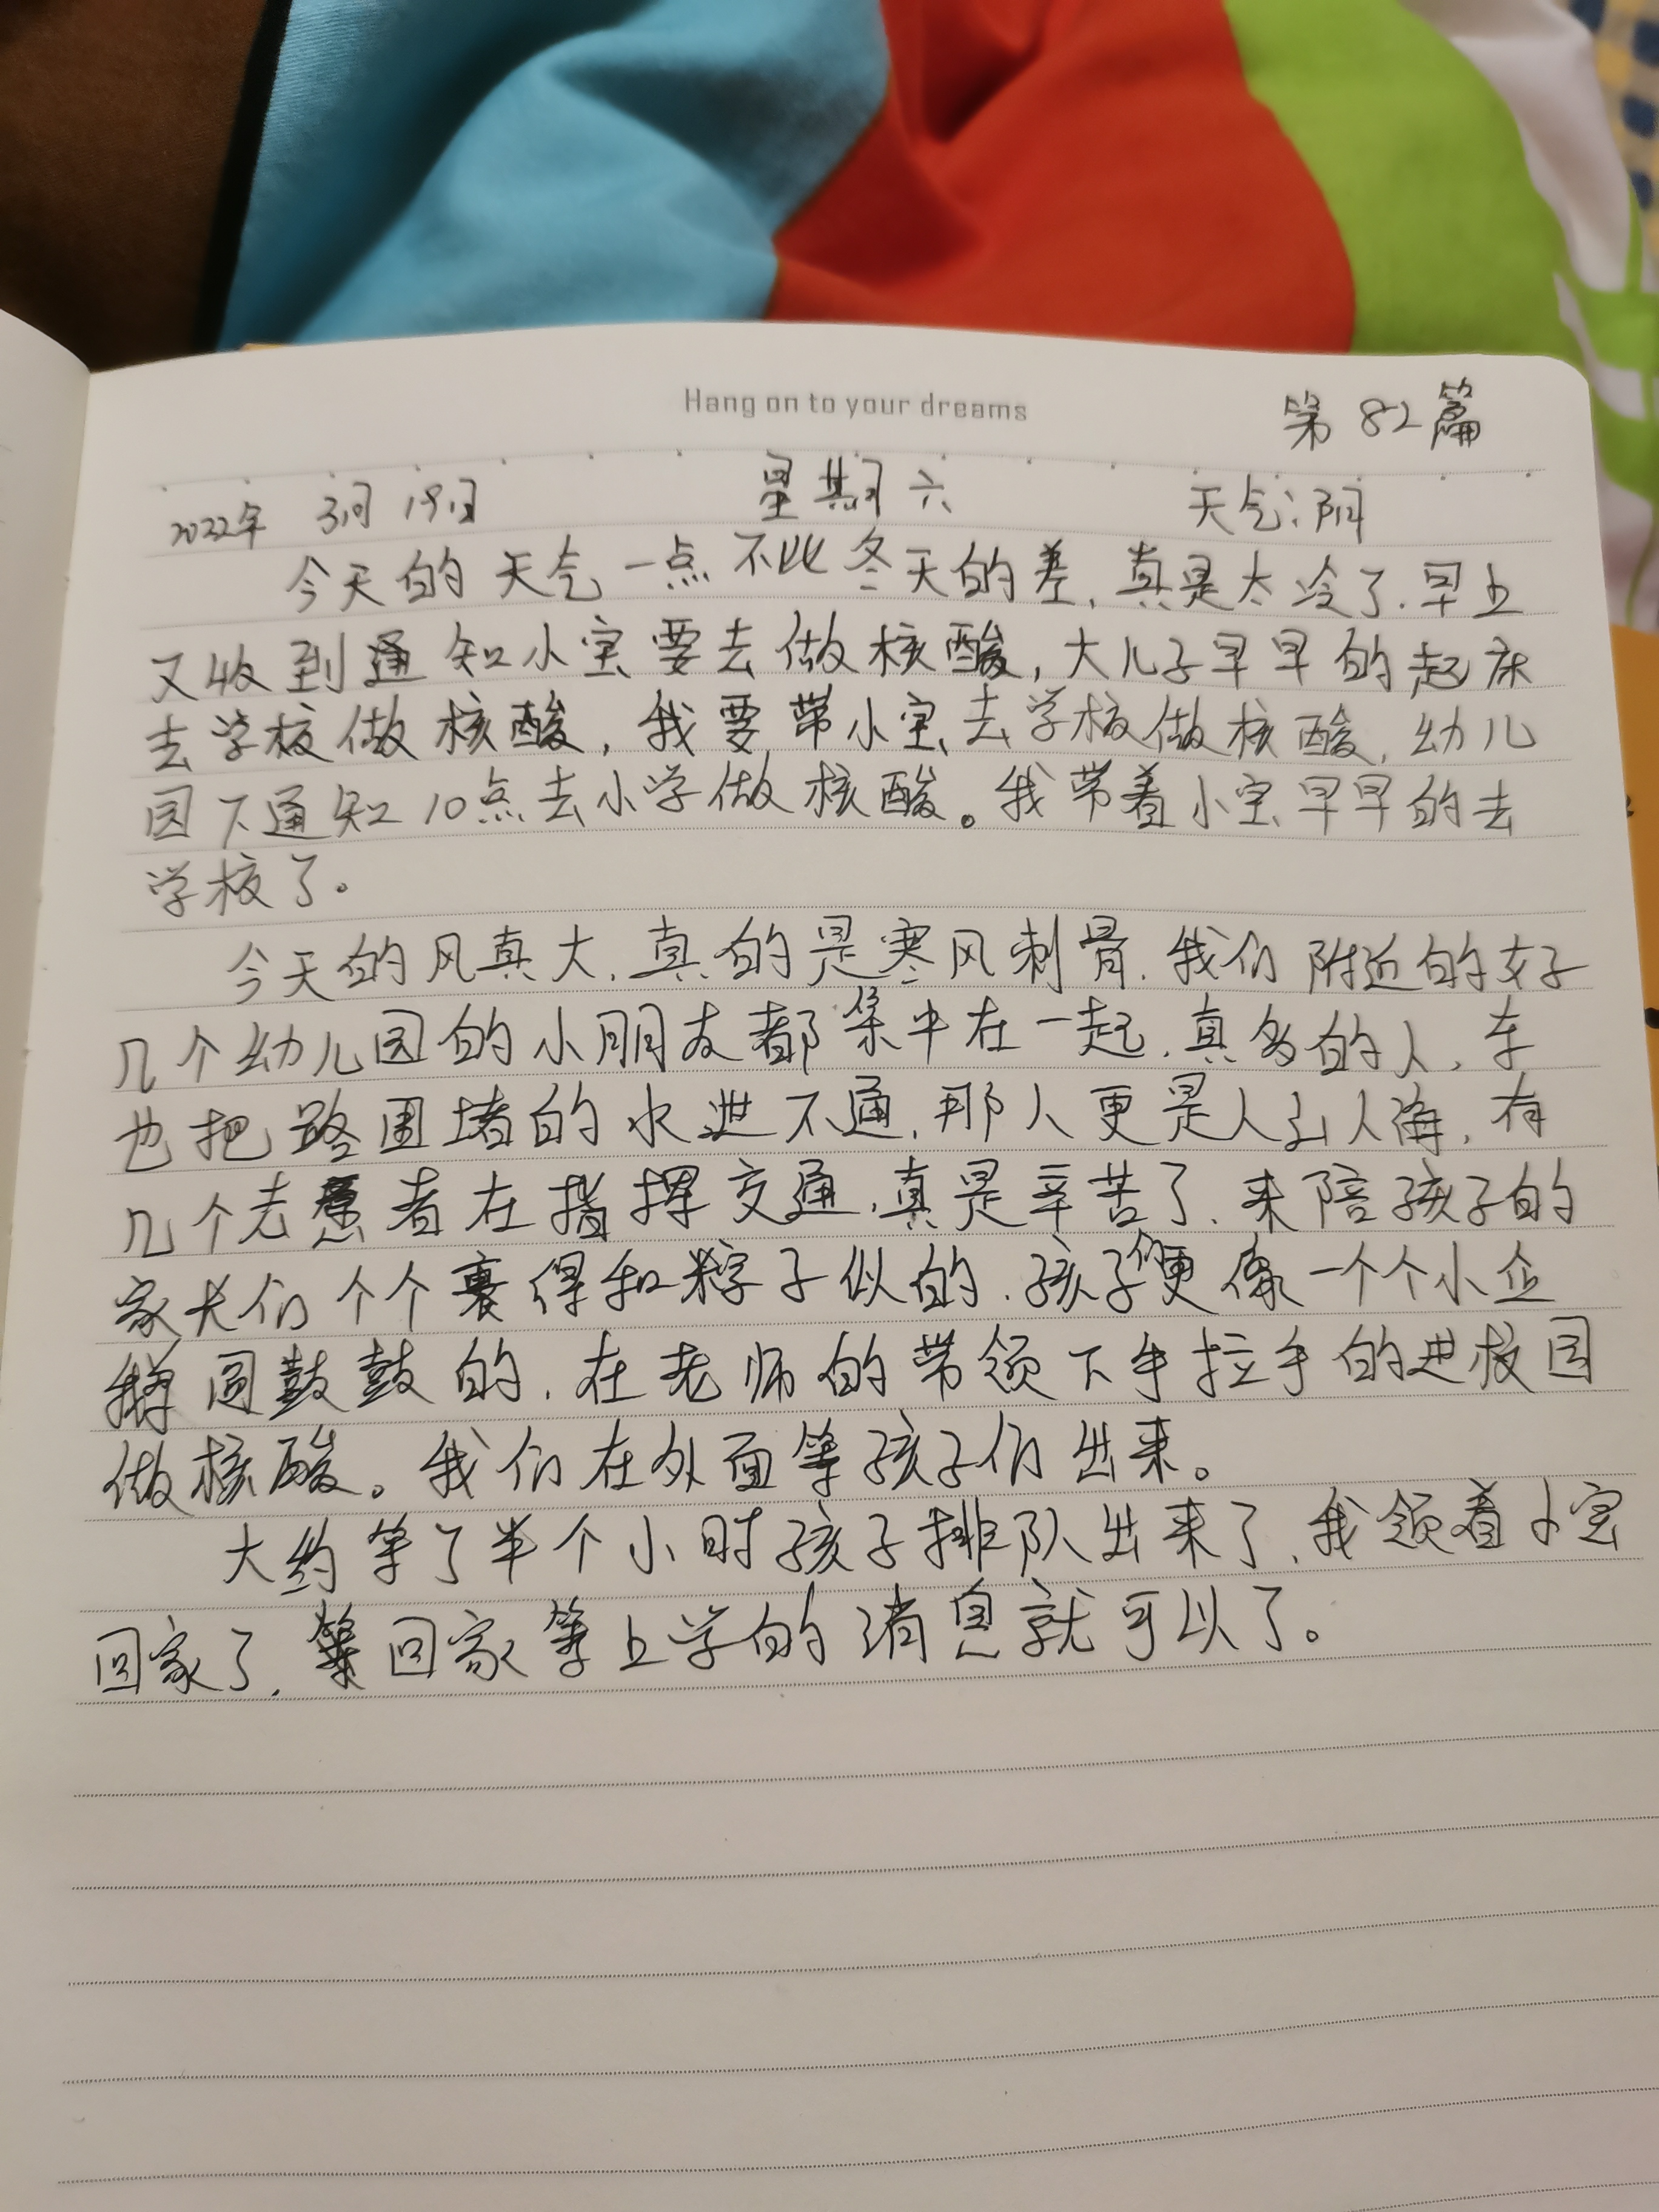 Hang on to your dreams
第82篇
2022年 3月19日 星期六 天气:阴
今天的天气一点不比冬天的差,真是太冷了.早上
又收到通知小宝要去做核酸,大儿子早早的起床
去学校做核酸,我要带小宝去学校做核酸,幼儿
园下通知10点去小学做核酸。我带着小宝早早的去
学校了。
今天的风真大,真的是寒风刺骨.我们附近的好
几个幼儿园的小朋友都集中在一起,真多的人,车
也把路围堵的水泄不通,那人更是人山人海,有
几个志愿者在指挥交通,真是辛苦了.来陪孩子的
家长们个个裹得和粽子似的.孩子们更像一个个小企
鹅圆鼓鼓的.在老师的带领下手拉手的进校园
做核酸。我们在外面等孩子们出来。
大约等了半个小时孩子排队出来了,我领着小宝
回家了,回家等上学的消息就可以了。